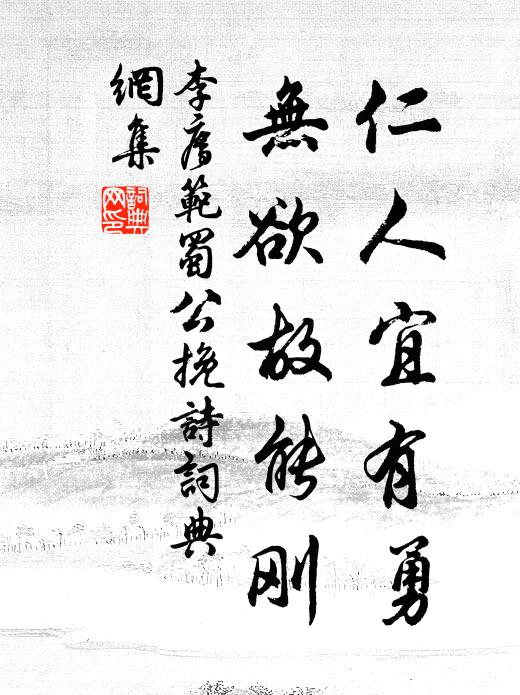 仁人宜有勇
無欲故能刚
李廌範蜀公挽詩詞典
網集
詞典
网印